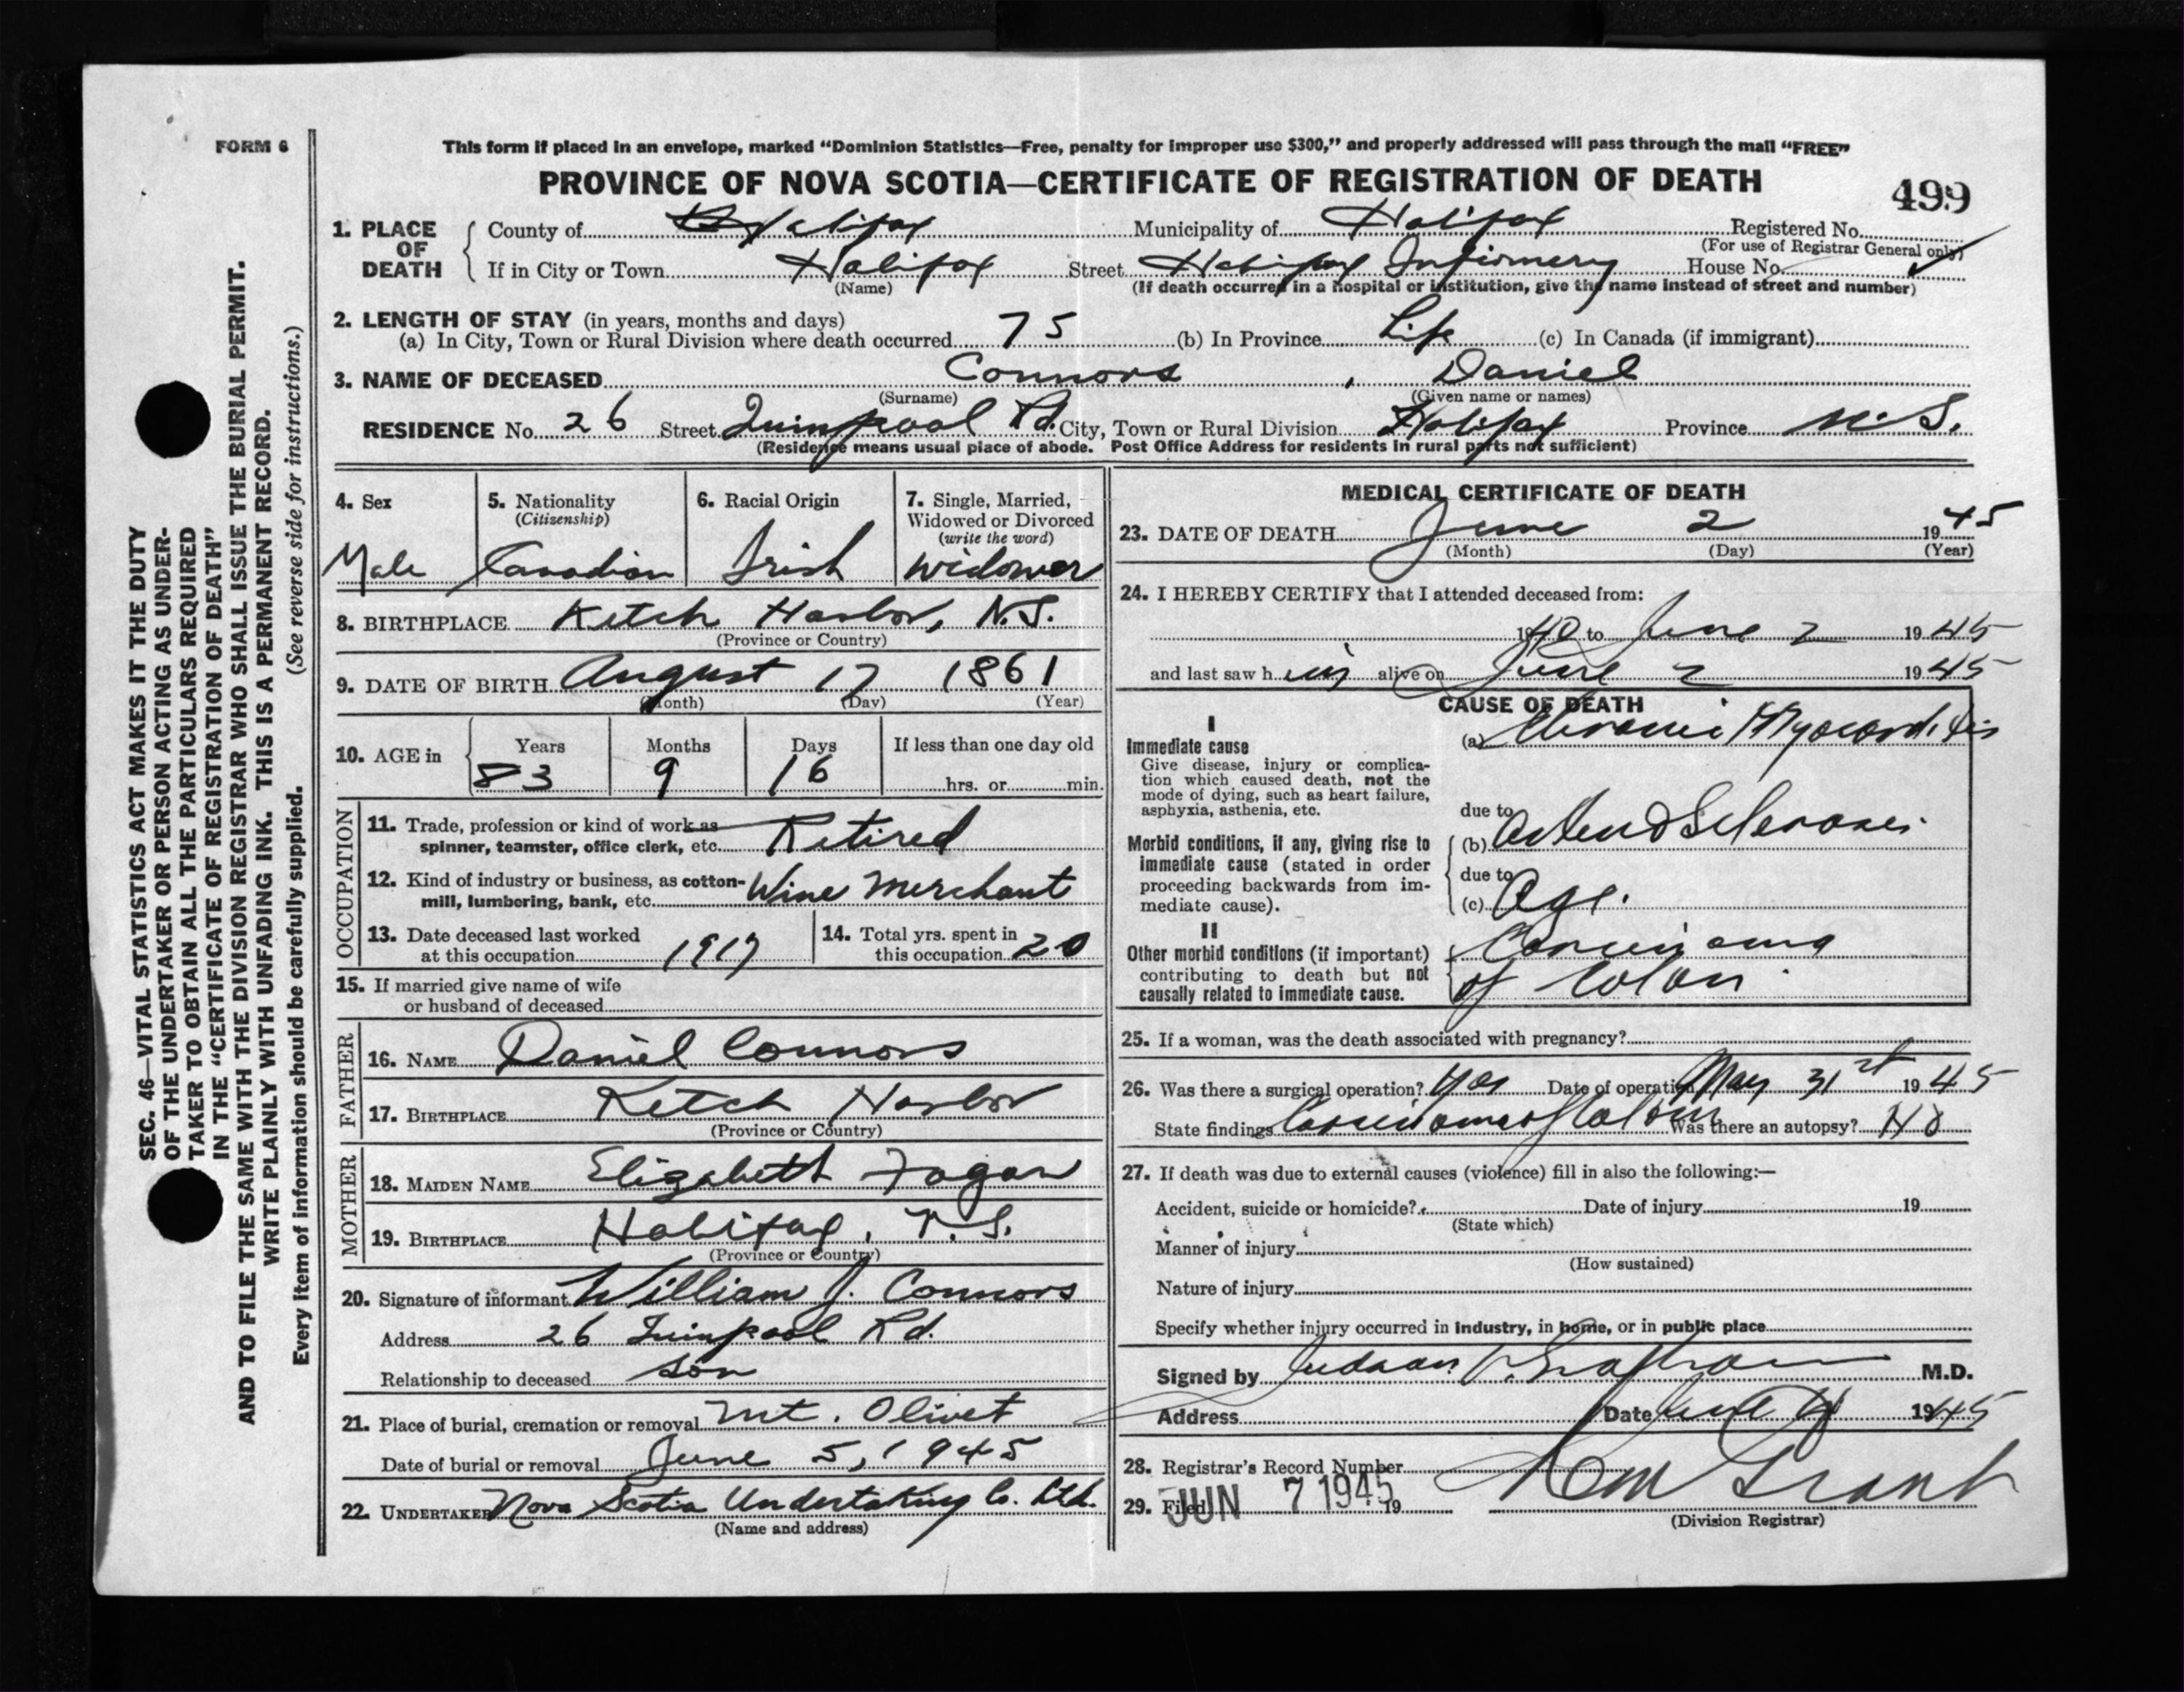 FORM 6
This form if placed in an envelope, marked “Dominion Statistics—Free, penalty for improper use $300,” and properly addressed will pass through the mail “FREE”
PROVINCE OF NOVA SCOTIA—CERTIFICATE OF REGISTRATION OF DEATH
499
1. PLACE OF DEATH
County of Halifax Municipality of Halifax Registered No.
(For use of Registrar General only)
If in City or Town Halifax Street Halifax Infirmary House No.
(Name) (If death occurred in a hospital or institution, give the name instead of street and number)
2. LENGTH OF STAY (in years, months and days)
(a) In City, Town or Rural Division where death occurred 75 (b) In Province Life (c) In Canada (if immigrant)
3. NAME OF DECEASED Connors , Daniel
(Surname) (Given name or names)
RESIDENCE No. 26 Street Quinpool Rd. City, Town or Rural Division Halifax Province N.S.
(Residence means usual place of abode. Post Office Address for residents in rural parts not sufficient)
4. Sex
Male
5. Nationality
(Citizenship)
Canadian
6. Racial Origin
Irish
7. Single, Married,
Widowed or Divorced
(write the word)
Widower
8. BIRTHPLACE Ketch Harbor, N.S.
(Province or Country)
9. DATE OF BIRTH August 17 1861
(Month) (Day) (Year)
10. AGE in Years Months Days If less than one day old
83 9 16 hrs. or min.
OCCUPATION
11. Trade, profession or kind of work as
spinner, teamster, office clerk, etc. Retired
12. Kind of industry or business, as cotton-
mill, lumbering, bank, etc. Wine Merchant
13. Date deceased last worked
at this occupation 1917
14. Total yrs. spent in
this occupation 20
15. If married give name of wife
or husband of deceased
FATHER
16. NAME Daniel Connors
17. BIRTHPLACE Ketch Harbor
(Province or Country)
MOTHER
18. MAIDEN NAME Elizabeth Fagan
19. BIRTHPLACE Halifax, N.S.
(Province or Country)
20. Signature of informant William J. Connors
Address 26 Quinpool Rd.
Relationship to deceased son
21. Place of burial, cremation or removal Mt. Olivet
Date of burial or removal June 5, 1945
22. UNDERTAKER Nova Scotia Undertaking Co. Ltd.
(Name and address)
MEDICAL CERTIFICATE OF DEATH
23. DATE OF DEATH June 2 1945
(Month) (Day) (Year)
24. I HEREBY CERTIFY that I attended deceased from:
1940 to June 2 1945
and last saw him alive on June 2 1945
CAUSE OF DEATH
I
Immediate cause
Give disease, injury or complica-
tion which caused death, not the
mode of dying, such as heart failure,
asphyxia, asthenia, etc.
(a) Chronic Myocarditis
due to
Morbid conditions, if any, giving rise to
immediate cause (stated in order
proceeding backwards from im-
mediate cause).
(b) Arterio Sclerosis.
due to
(c) Age.
II
Other morbid conditions (if important)
contributing to death but not
causally related to immediate cause.
Carcinoma
of Colon.
25. If a woman, was the death associated with pregnancy?
26. Was there a surgical operation? Yes Date of operation May 31st 1945
State findings Carcinoma of Colon Was there an autopsy? No
27. If death was due to external causes (violence) fill in also the following:—
Accident, suicide or homicide? Date of injury 19
(State which)
Manner of injury
(How sustained)
Nature of injury
Specify whether injury occurred in industry, in home, or in public place
Signed by M.D.
Address Date June 4 1945
28. Registrar's Record Number
29. Filed JUN 7 1945 19
Grant
(Division Registrar)
SEC. 46—VITAL STATISTICS ACT MAKES IT THE DUTY
OF THE UNDERTAKER OR PERSON ACTING AS UNDER-
TAKER TO OBTAIN ALL THE PARTICULARS REQUIRED
IN THE “CERTIFICATE OF REGISTRATION OF DEATH”
AND TO FILE THE SAME WITH THE DIVISION REGISTRAR WHO SHALL ISSUE THE BURIAL PERMIT.
WRITE PLAINLY WITH UNFADING INK. THIS IS A PERMANENT RECORD.
Every item of information should be carefully supplied. (See reverse side for instructions.)